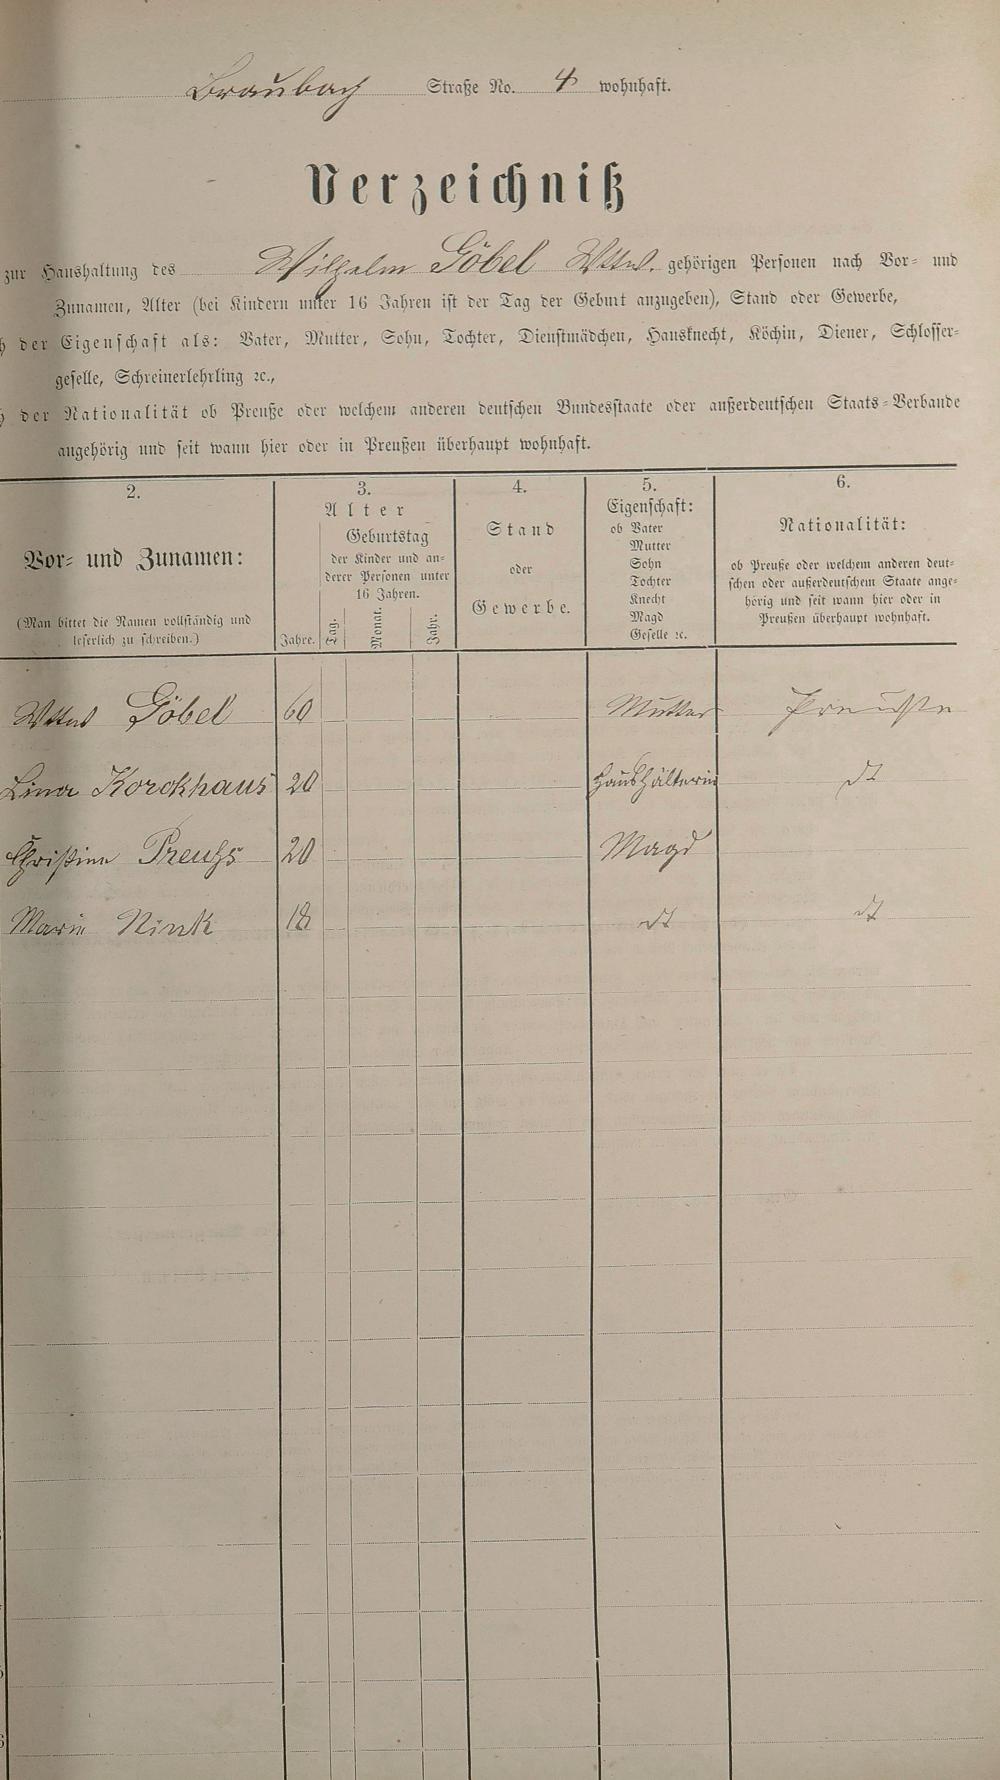 Braubach Straße No. 4 wohnhaft.
Verzeichniß
zur Haushaltung des Wilhelm Göbel Wttw. gehörigen Personen nach Vor- und
Zunamen, Alter (bei Kindern unter 16 Jahren ist der Tag der Geburt anzugeben), Stand oder Gewerbe,
der Eigenschaft als: Vater, Mutter, Sohn, Tochter, Dienstmädchen, Hausknecht, Köchin, Diener, Schlosser-
geselle, Schreinerlehrling ꝛc.,
der Nationalität ob Preuße oder welchem anderen deutschen Bundesstaate oder außerdeutschen Staats-Verbande
angehörig und seit wann hier oder in Preußen überhaupt wohnhaft.
2. 3. 4. 5. 6.
Vor- und Zunamen:
(Man bittet die Namen vollständig und
leserlich zu schreiben.)
Alter
Jahre.
Geburtstag
der Kinder und an-
derer Personen unter
16 Jahren.
Tag. Monat. Jahr.
Stand
oder
Gewerbe.
Eigenschaft:
ob Vater
Mutter
Sohn
Tochter
Knecht
Magd
Geselle ꝛc.
Nationalität:
ob Preuße oder welchem anderen deut-
schen oder außerdeutschem Staate ange-
hörig und seit wann hier oder in
Preußen überhaupt wohnhaft.
Wttw Göbel 60 Mutter Preußen
Lina Korckhaus 20 Haushälterin dt
Christine Preuhs 20 Magd
Marie Nink 18 dt dt